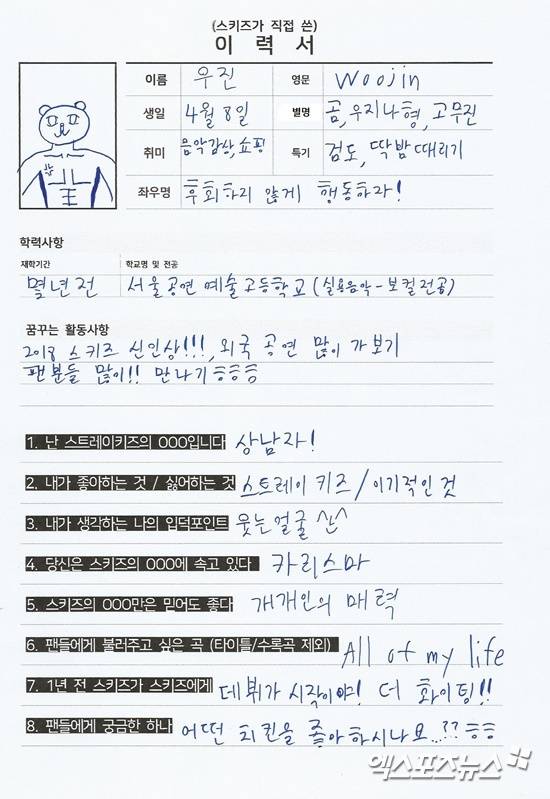 (스키즈가 직접 쓴)
이 력 서
이름 우진 영문 Woojin
생일 4월 8일 별명 곰, 우지나형, 고무진
취미 음악감상, 쇼핑 특기 검도, 딱밤 때리기
좌우명 후회하지 않게 행동하라!
학력사항
재학기간 학교명 및 전공
몇년전 서울공연예술고등학교 (실용음악-보컬전공)
꿈꾸는 활동사항
2018 스키즈 신인상!!!, 외국 공연 많이 가보기
팬분들 많이!! 만나기ㅎㅎㅎ
1. 난 스트레이키즈의 OOO입니다 상남자!
2. 내가 좋아하는 것 / 싫어하는 것 스트레이 키즈 / 이기적인 것
3. 내가 생각하는 나의 입덕포인트 웃는얼굴 ^^
4. 당신은 스키즈의 OOO에 속고 있다 카리스마
5. 스키즈의 OOO만은 믿어도 좋다 개개인의 매력
6. 팬들에게 불러주고 싶은 곡 (타이틀/수록곡 제외) All of my life
7. 1년 전 스키즈가 스키즈에게 데뷔가 시작이야! 더 화이팅!!
8. 팬들에게 궁금한 하나 어떤 치킨을 좋아하시나요..?? ㅎㅎ
엑스포츠뉴스